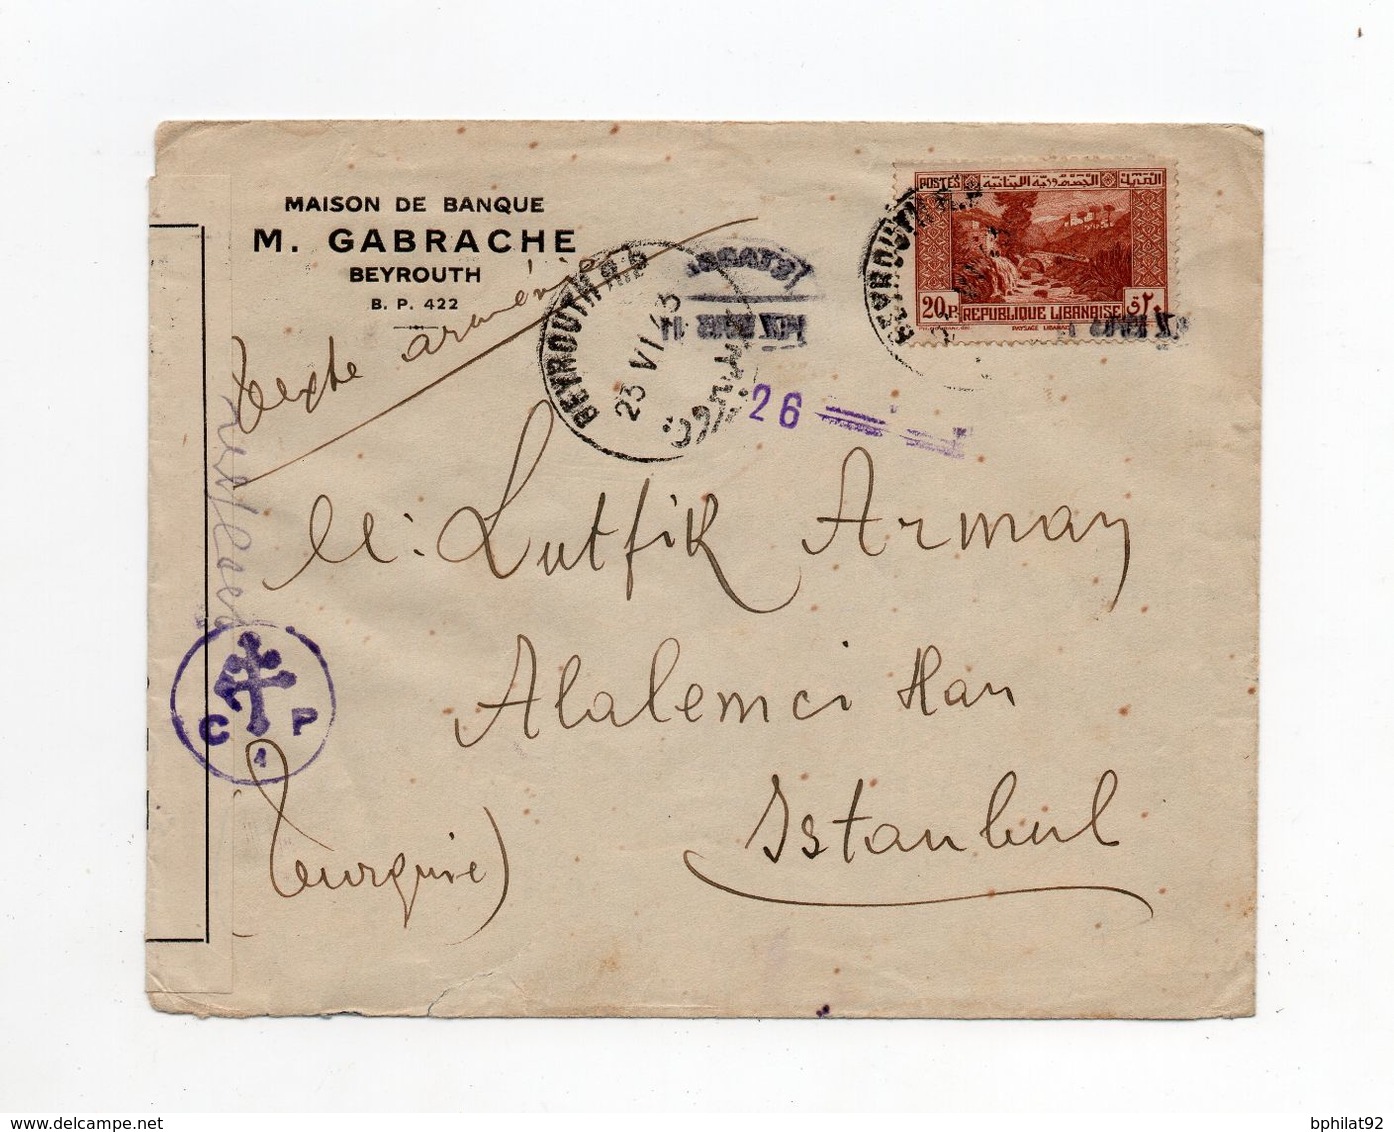 MAISON DE BANQUE
M. GABRACHE
BEYROUTH
B. P. 422
Texte arménien
BEYROUTH R.P
23 VI 43
بيروت
26
POSTES الجمهورية اللبنانية البريد
20 P. REPUBLIQUE LIBANAISE ٢٠ ق
PAYSAGE LIBANAIS
BEYROUTH R.P
M: Lutfik Arman
Alalemci Han
Istanbul
(Turquie)
C P
1
delcampe.net
bphilat92